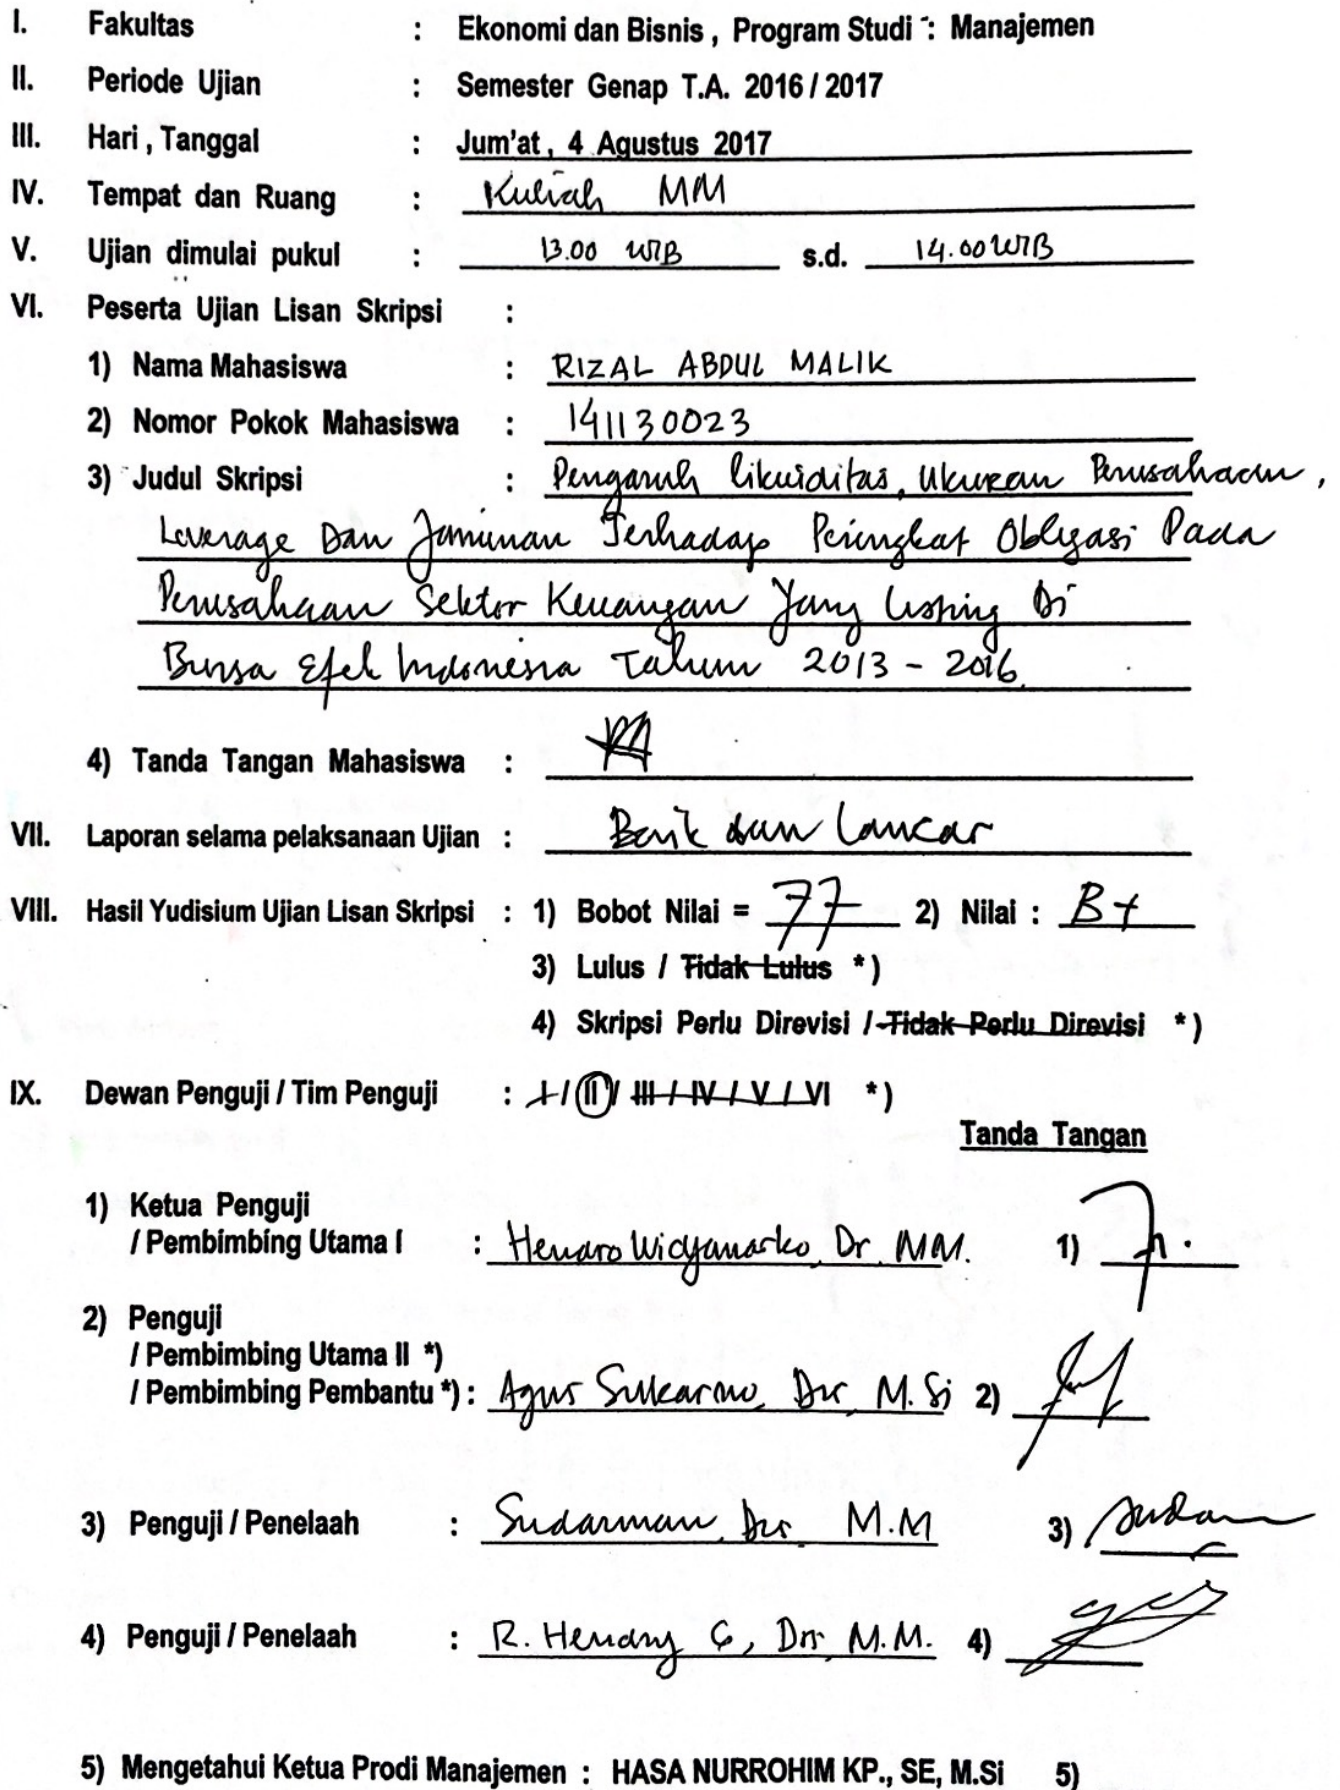 I. Fakultas : Ekonomi dan Bisnis , Program Studi : Manajemen
II. Periode Ujian : Semester Genap T.A. 2016 / 2017
III. Hari , Tanggal : Jum'at , 4 Agustus 2017
IV. Tempat dan Ruang : Kuliah MM
V. Ujian dimulai pukul : 13.00 WIB s.d. 14.00 WIB
VI. Peserta Ujian Lisan Skripsi :
1) Nama Mahasiswa : RIZAL ABDUL MALIK
2) Nomor Pokok Mahasiswa : 141130023
3) Judul Skripsi : Pengaruh likuiditas, Ukuran Perusahaan,
Leverage Dan Jaminan Terhadap Peringkat Obligasi Pada
Perusahaan Sektor Keuangan Yang Listing Di
Bursa Efek Indonesia Tahun 2013 - 2016.
4) Tanda Tangan Mahasiswa :
VII. Laporan selama pelaksanaan Ujian : Baik dan Lancar
VIII. Hasil Yudisium Ujian Lisan Skripsi : 1) Bobot Nilai = 77 2) Nilai : B+
3) Lulus / Tidak Lulus * )
4) Skripsi Perlu Direvisi / Tidak Perlu Direvisi * )
IX. Dewan Penguji / Tim Penguji : I / II / III / IV / V / VI * )
Tanda Tangan
1) Ketua Penguji
/ Pembimbing Utama I : Hendro Widjanarko, Dr. MM. 1)
2) Penguji
/ Pembimbing Utama II *)
/ Pembimbing Pembantu *) : Agus Sukarno, Drs, M.Si 2)
3) Penguji / Penelaah : Sudarman, Drs. M.M 3)
4) Penguji / Penelaah : R. Hendry G, Drs, M.M. 4)
5) Mengetahui Ketua Prodi Manajemen : HASA NURROHIM KP., SE, M.Si 5)